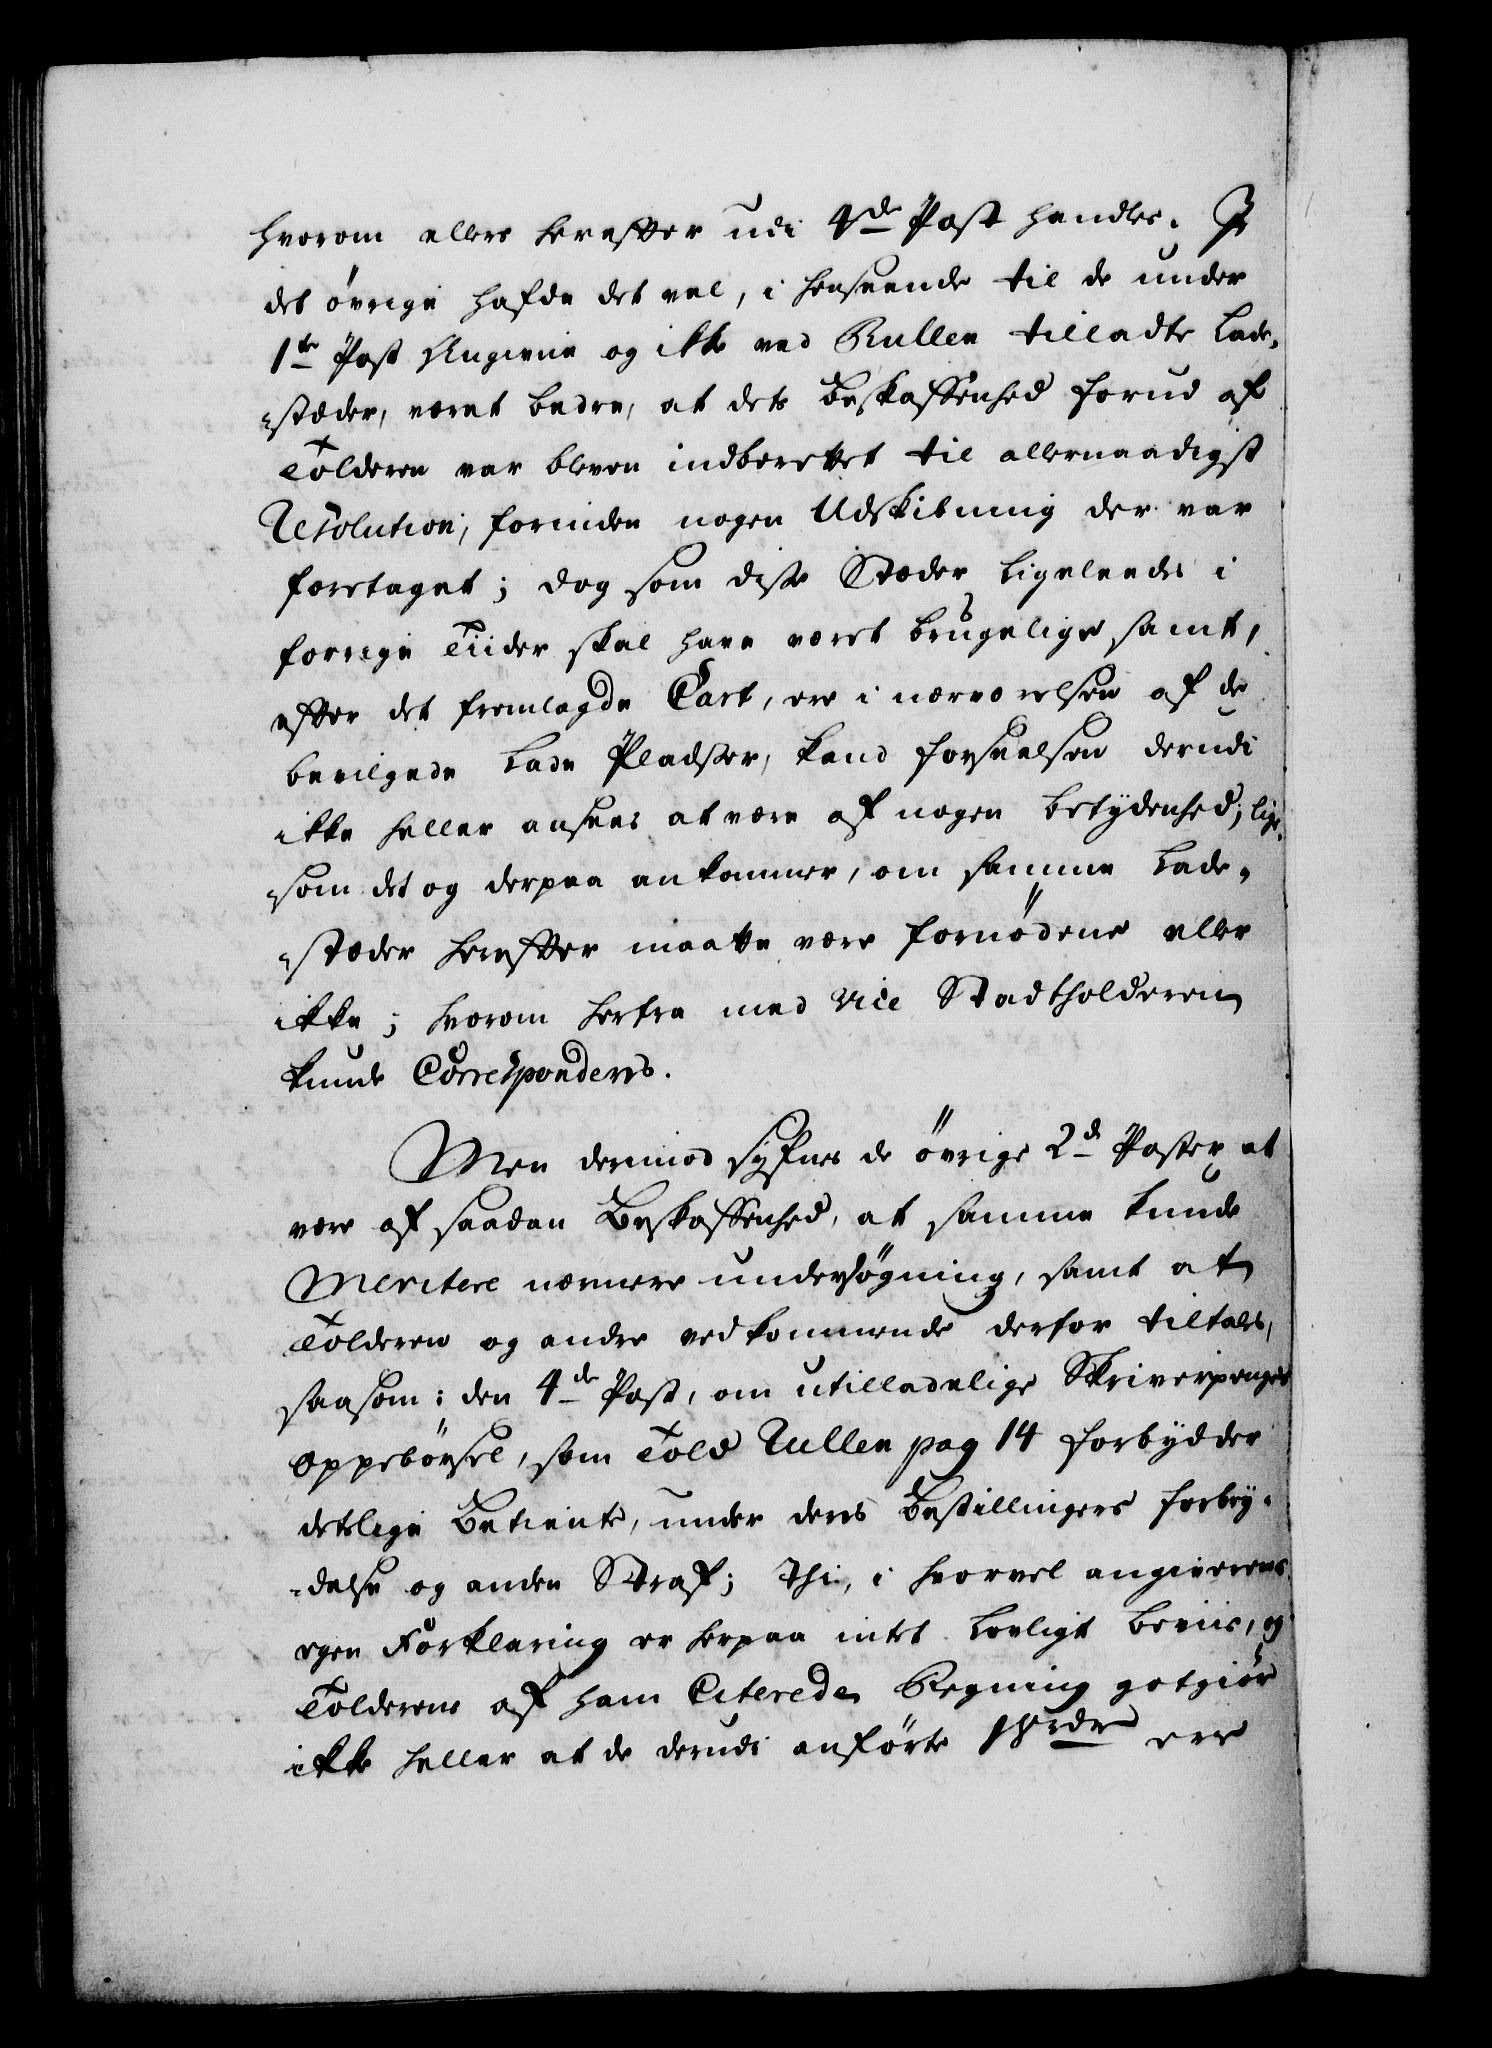 hvorom ellers herefter udi 4de Post handles. I
det övrige hafde det vel, i henseende til de under
1te Post Angivne og ikke ved Rullen tilladte Lade-
-stæder, været bedre, at dets Beskaffenhed forud af
Tolderen var bleven indberettet til allernaadigst
Resolution, forinden nogen Udskibning der var
foretaget; dog som disse Stæder ligeleedes i
forrige Tiider skal have været brugelige samt,
efter det fremlagde Cart, ere i nærværelsen af de
bevilgede Lade Pladser, kand forseelsen derudi
ikke heller ansees at være af nogen betydenhed; lige-
-som det og derpaa ankommer, om samme Lade-
-stæder herefter maatte være fornödene eller
ikke; hvorom herfra med Vice Stadtholderen
kunde Corresponderes.
Men derimod syfnes de övrige 2de Poster at
være af saadan Beskaffenhed, at samme kunde
Meritere nærmere undersögning, samt at
Tolderen og andre vedkommende derfor tiltales,
saasom: den 4de Post, om utilladelige Skriverpenges
oppebörsel, som Told Rullen pag 14 forbydder
deslige Betiente, under deres Bestillingers forbry-
-delse og anden Straf; Thi, i hvorvel angiverens
egen Forklaring er herpaa intet lovligt beviis, og
Tolderens af ham Citerede Regning gotgiör
ikke heller at de derudi anförte ere